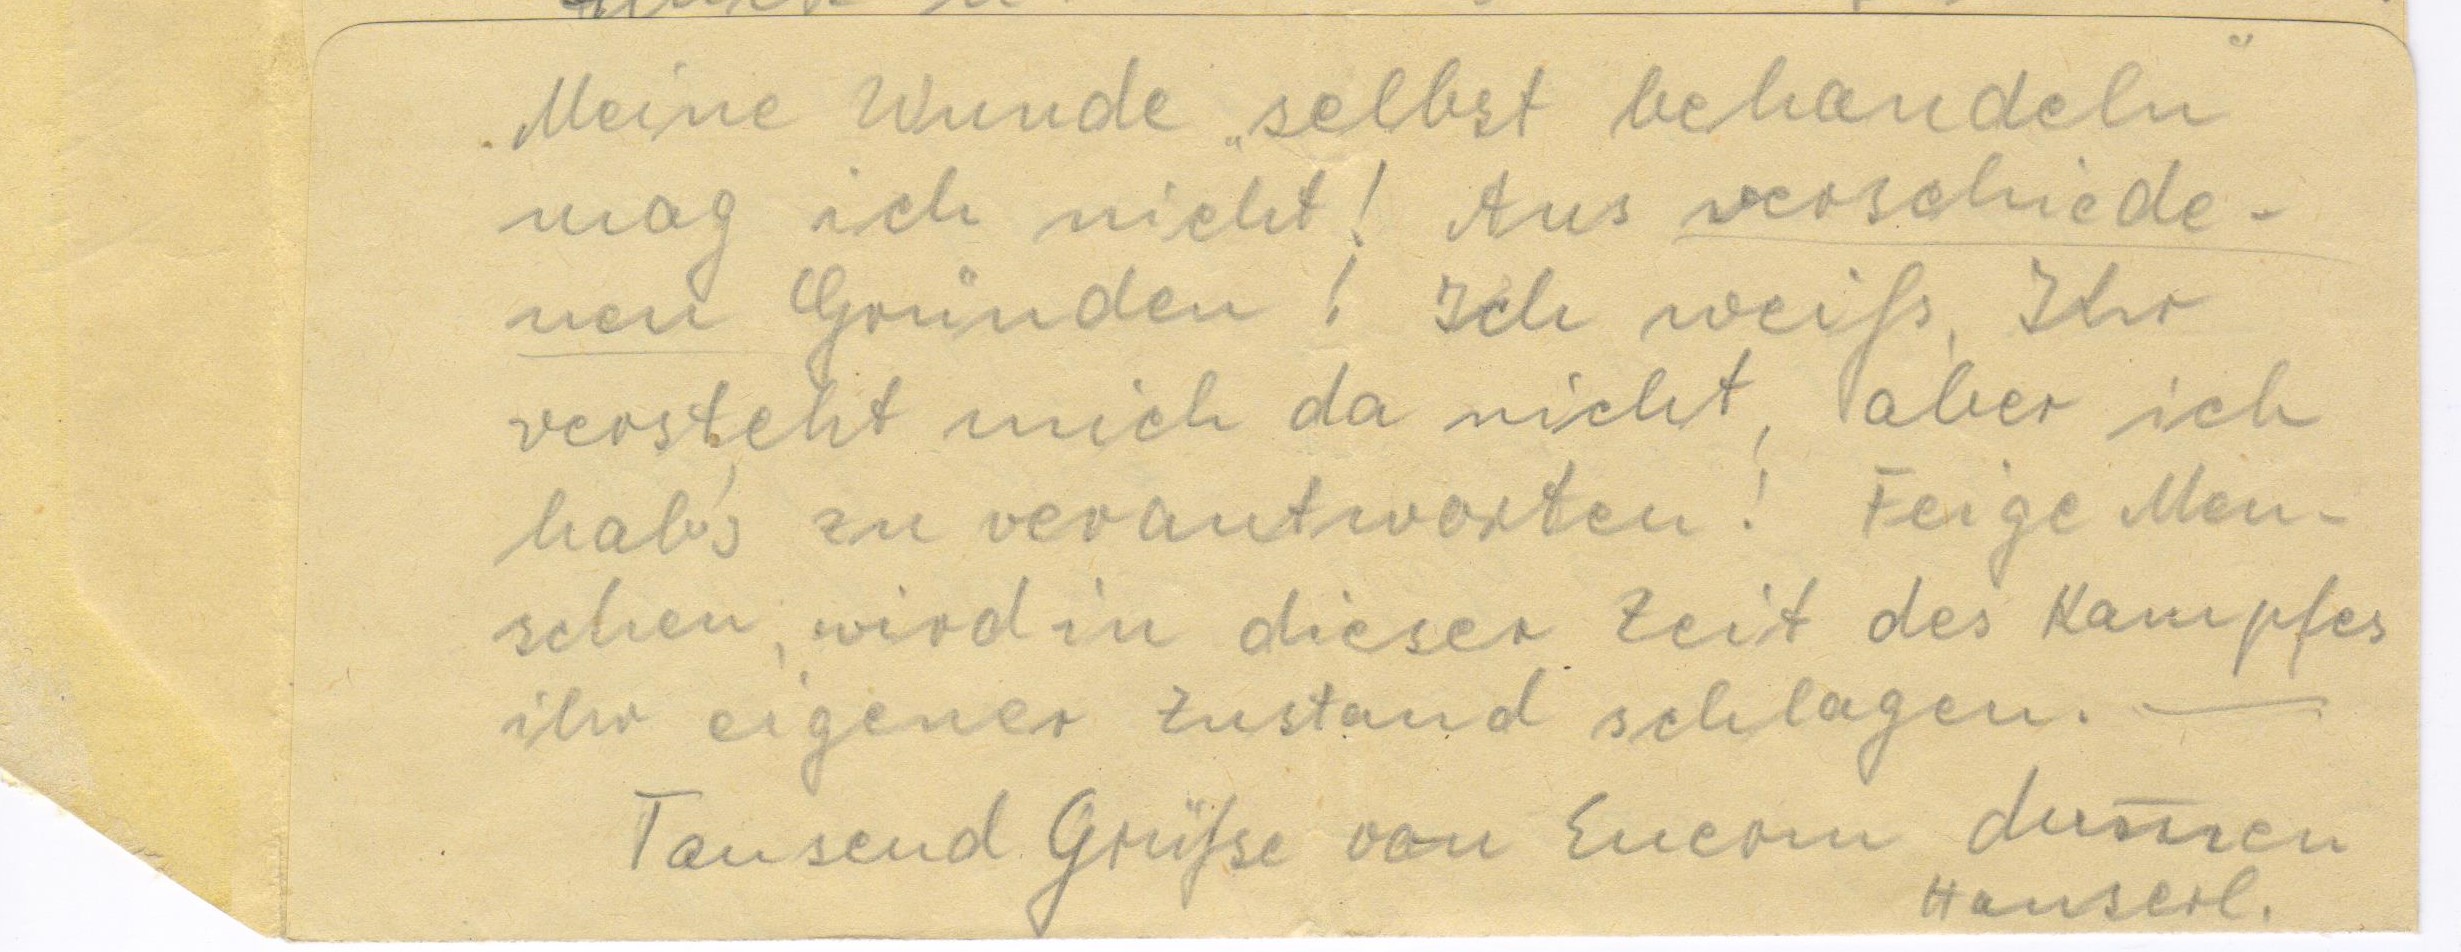 Meine Wunde „selbst behandeln"
mag ich nicht! Aus verschiede-
nen Gründen! Ich weiß, Ihr
versteht mich da nicht, aber ich
hab's zu verantworten! Feige Men-
schen, wird in dieser Zeit des Kampfes
ihr eigener Zustand schlagen. —
Tausend Grüße von Euerm dum̅en
Hanserl.